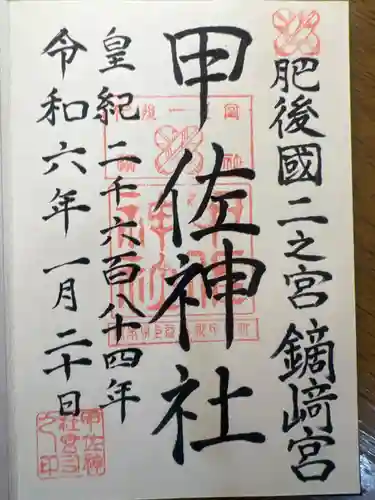 肥後國二之宮 鏑﨑宮
甲佐神社
皇紀二千六百八十四年
令和六年一月二十日
甲佐神社